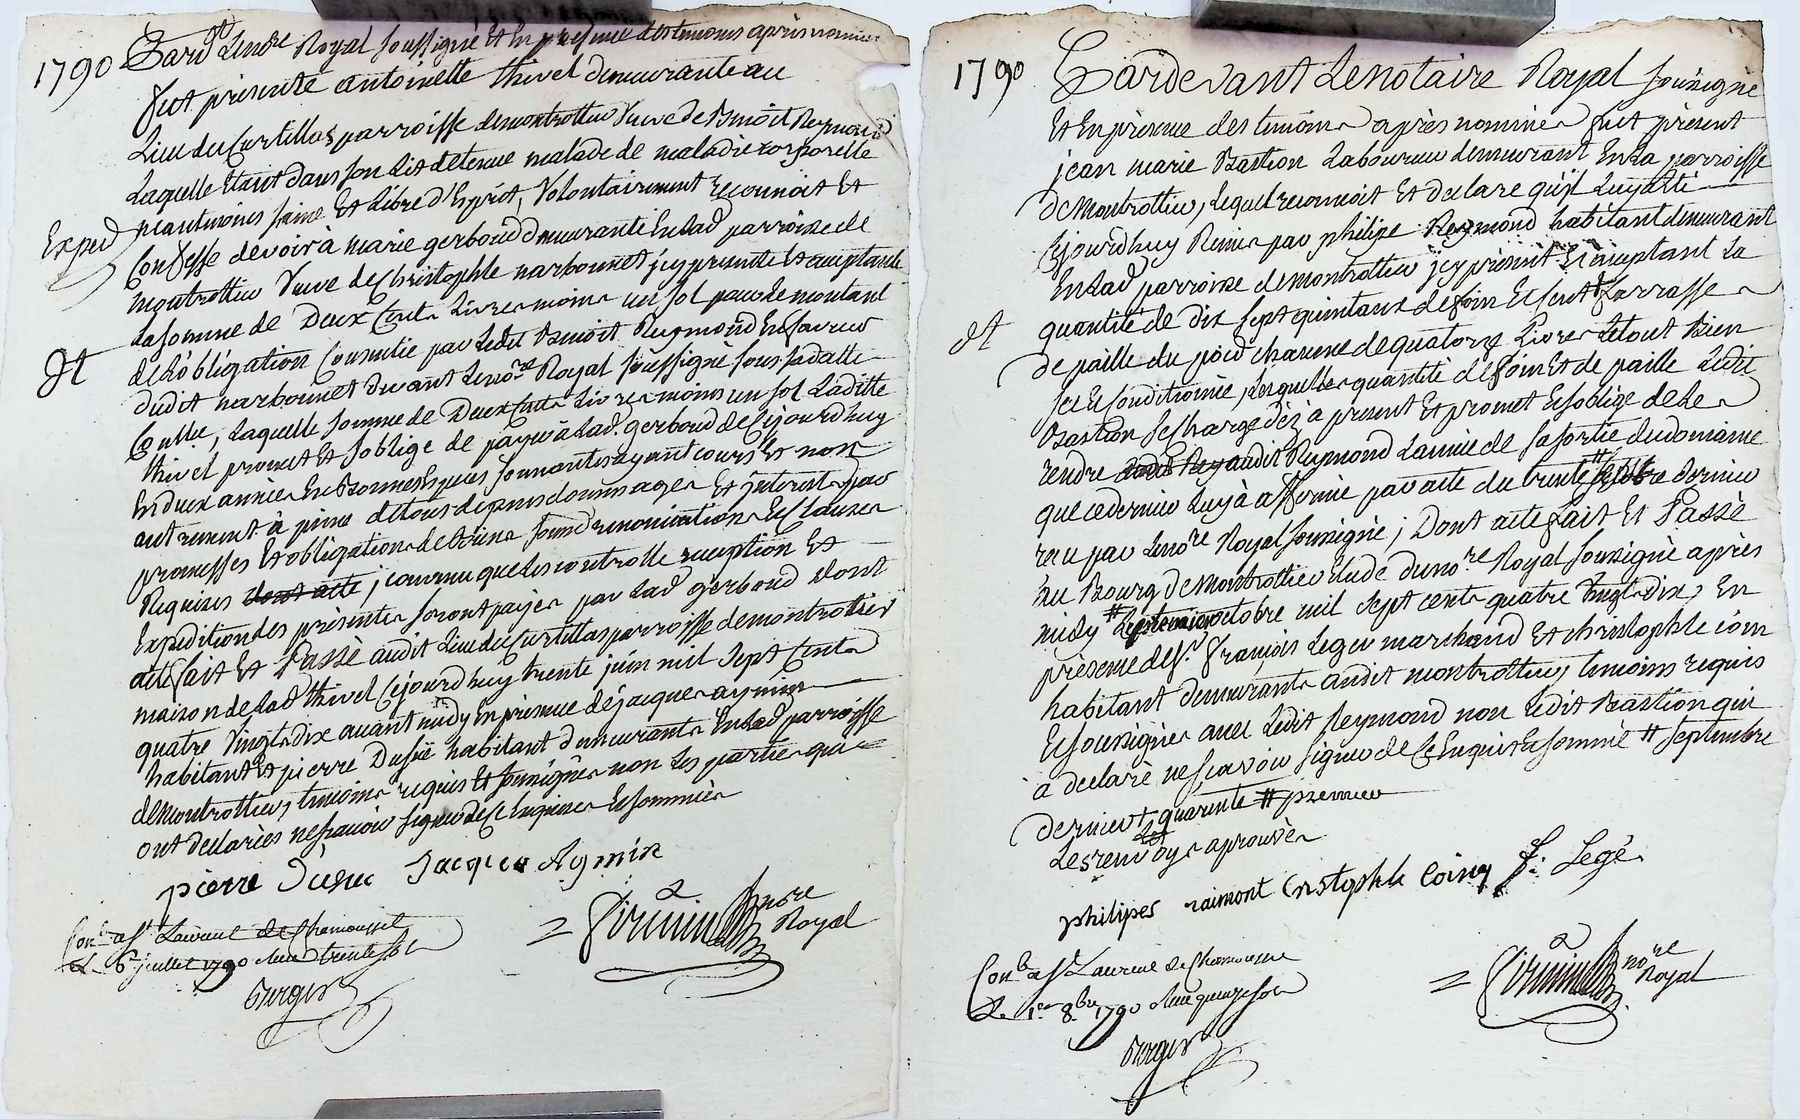 1790 Pard.t Le no.re Royal soussigné Et En presence des temoins après nommés
fut présente antoinette thivel demeurante au
Lieu du Curtillas parroisse de montrottier Veuve de Benoit Reymond
Laquelle Etant dans son Lit detenue malade de maladie corporelle
neantmoins saine Et Libre d'Esprit, Volontairement reconnoit Et
Exped
Confesse devoir à marie gerboud demeurante En lad parroisse de
montrottier Veuve de Christophle narbonnet jcy presente Et acceptante
La somme de Deux Cents Livres moins un sol pour le montant
de L'obligation Consentie par Ledit Benoit Reymond En faveur
dudit narbonnet devant Le no.re Royal soussigné sous sa datte
Et
Coullée, Laquelle somme de Deux Cents Livres moins un sol Laditte
thivel promet Et s'oblige de payer à Lad. gerboud de Cejourd'huy
En deux années En Bonnes Espèces sonnantes ayant cours Et non
autrement à peine de tous depens dommages Et jnterets par
promesses Et obligations de Biens soumd renonciations Et Clauses
Requises dont acte, jconvenu que Les controlle reception Et
Expedition des présentes seront payés par Lad gerboud dont
acte fait Et Passé audit Lieu du Curtillas parroisse de montrottier
maison de Lad thivel Cejourd'huy trente juin mil Sept Cents
quatre Vingts Dix avant midy En presence de jacques aymin
habitant Et pierre Dusuc habitant demeurants En Lad parroisse
de montrottier, temoins requis Et soussignés non Les parties qui
ont declarées ne scavoir signer de Ce Enquises Et sommées
pierre Dusuc Jacque Aymin
Firmin no.re
Royal
Con.lé a S.t Laurent de Chamousset
Le 6 juillet 1790 Reçu trente sols
Berger
1790 Pardevant Le notaire Royal soussigné
Et En présence des temoins après nommés fut présent
jean marie Bastion Laboureur demeurant En La parroisse
de Montrottier, Lequel reconnoit Et declare qu'il Luy a Eté
Cejourd'huy Remis par philipe Reymond habitant demeurant
En Lad parroisse de montrottier jcy présent Et acceptant La
quantité de Dix sept quintaux de foin Et Cent farrasses
Et
de paille du poid chacune de quatorze Livres Le tout Bien
sec Et Conditionné, Lesquelles quantité de foin Et de paille Ledit
Bastion se Charge dèz à present Et promet Et s'oblige de Les
rendre audit Rey audit Reymond L'année de sa sortie du domaine
que ce dernier Luy à affermé par acte du trente # 7bre dernier
reçu par Le no.re Royal soussigné; Dont acte fait Et Passé
Au Bourg de Montrottier Etude du no.re Royal soussigné après
midy # Le premier octobre mil Sept cents quatre Vingts Dix, En
présence de S.r François Leger marchand Et christophle coin
habitant demeurants audit montrottier, temoins requis
Et soussignés avec Ledit Reymond non Ledit Bastion qui
à declaré ne scavoir signer de Ce Enquis Et sommé # septembre
dernier # quarente # premier
Les renvoys aprouvés
philipes raimont Cristophle Coing f. Legé
Firmin no.re
Royal
Con.lé a S.t Laurent de Chamousset
Le 1.er 8.bre 1790 Reçu quinze sols
Berger